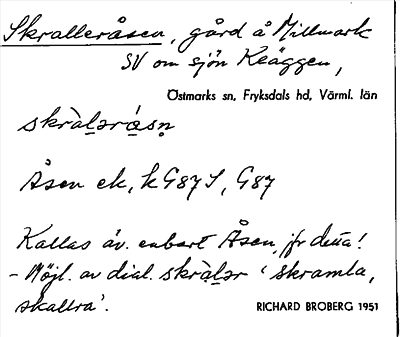 Skralleråsen, gård å Millmark
SV om sjön Kläggen,
Östmarks sn, Fryksdals hd, Värml. län
skràlǝrásn̥
Åsen ek, k G87S, G87
Kallas äv. enbart Åsen, jfr detta!
- Möjl. av dial. skràlǝr ‘skramla,
skallra’.
RICHARD BROBERG 1951